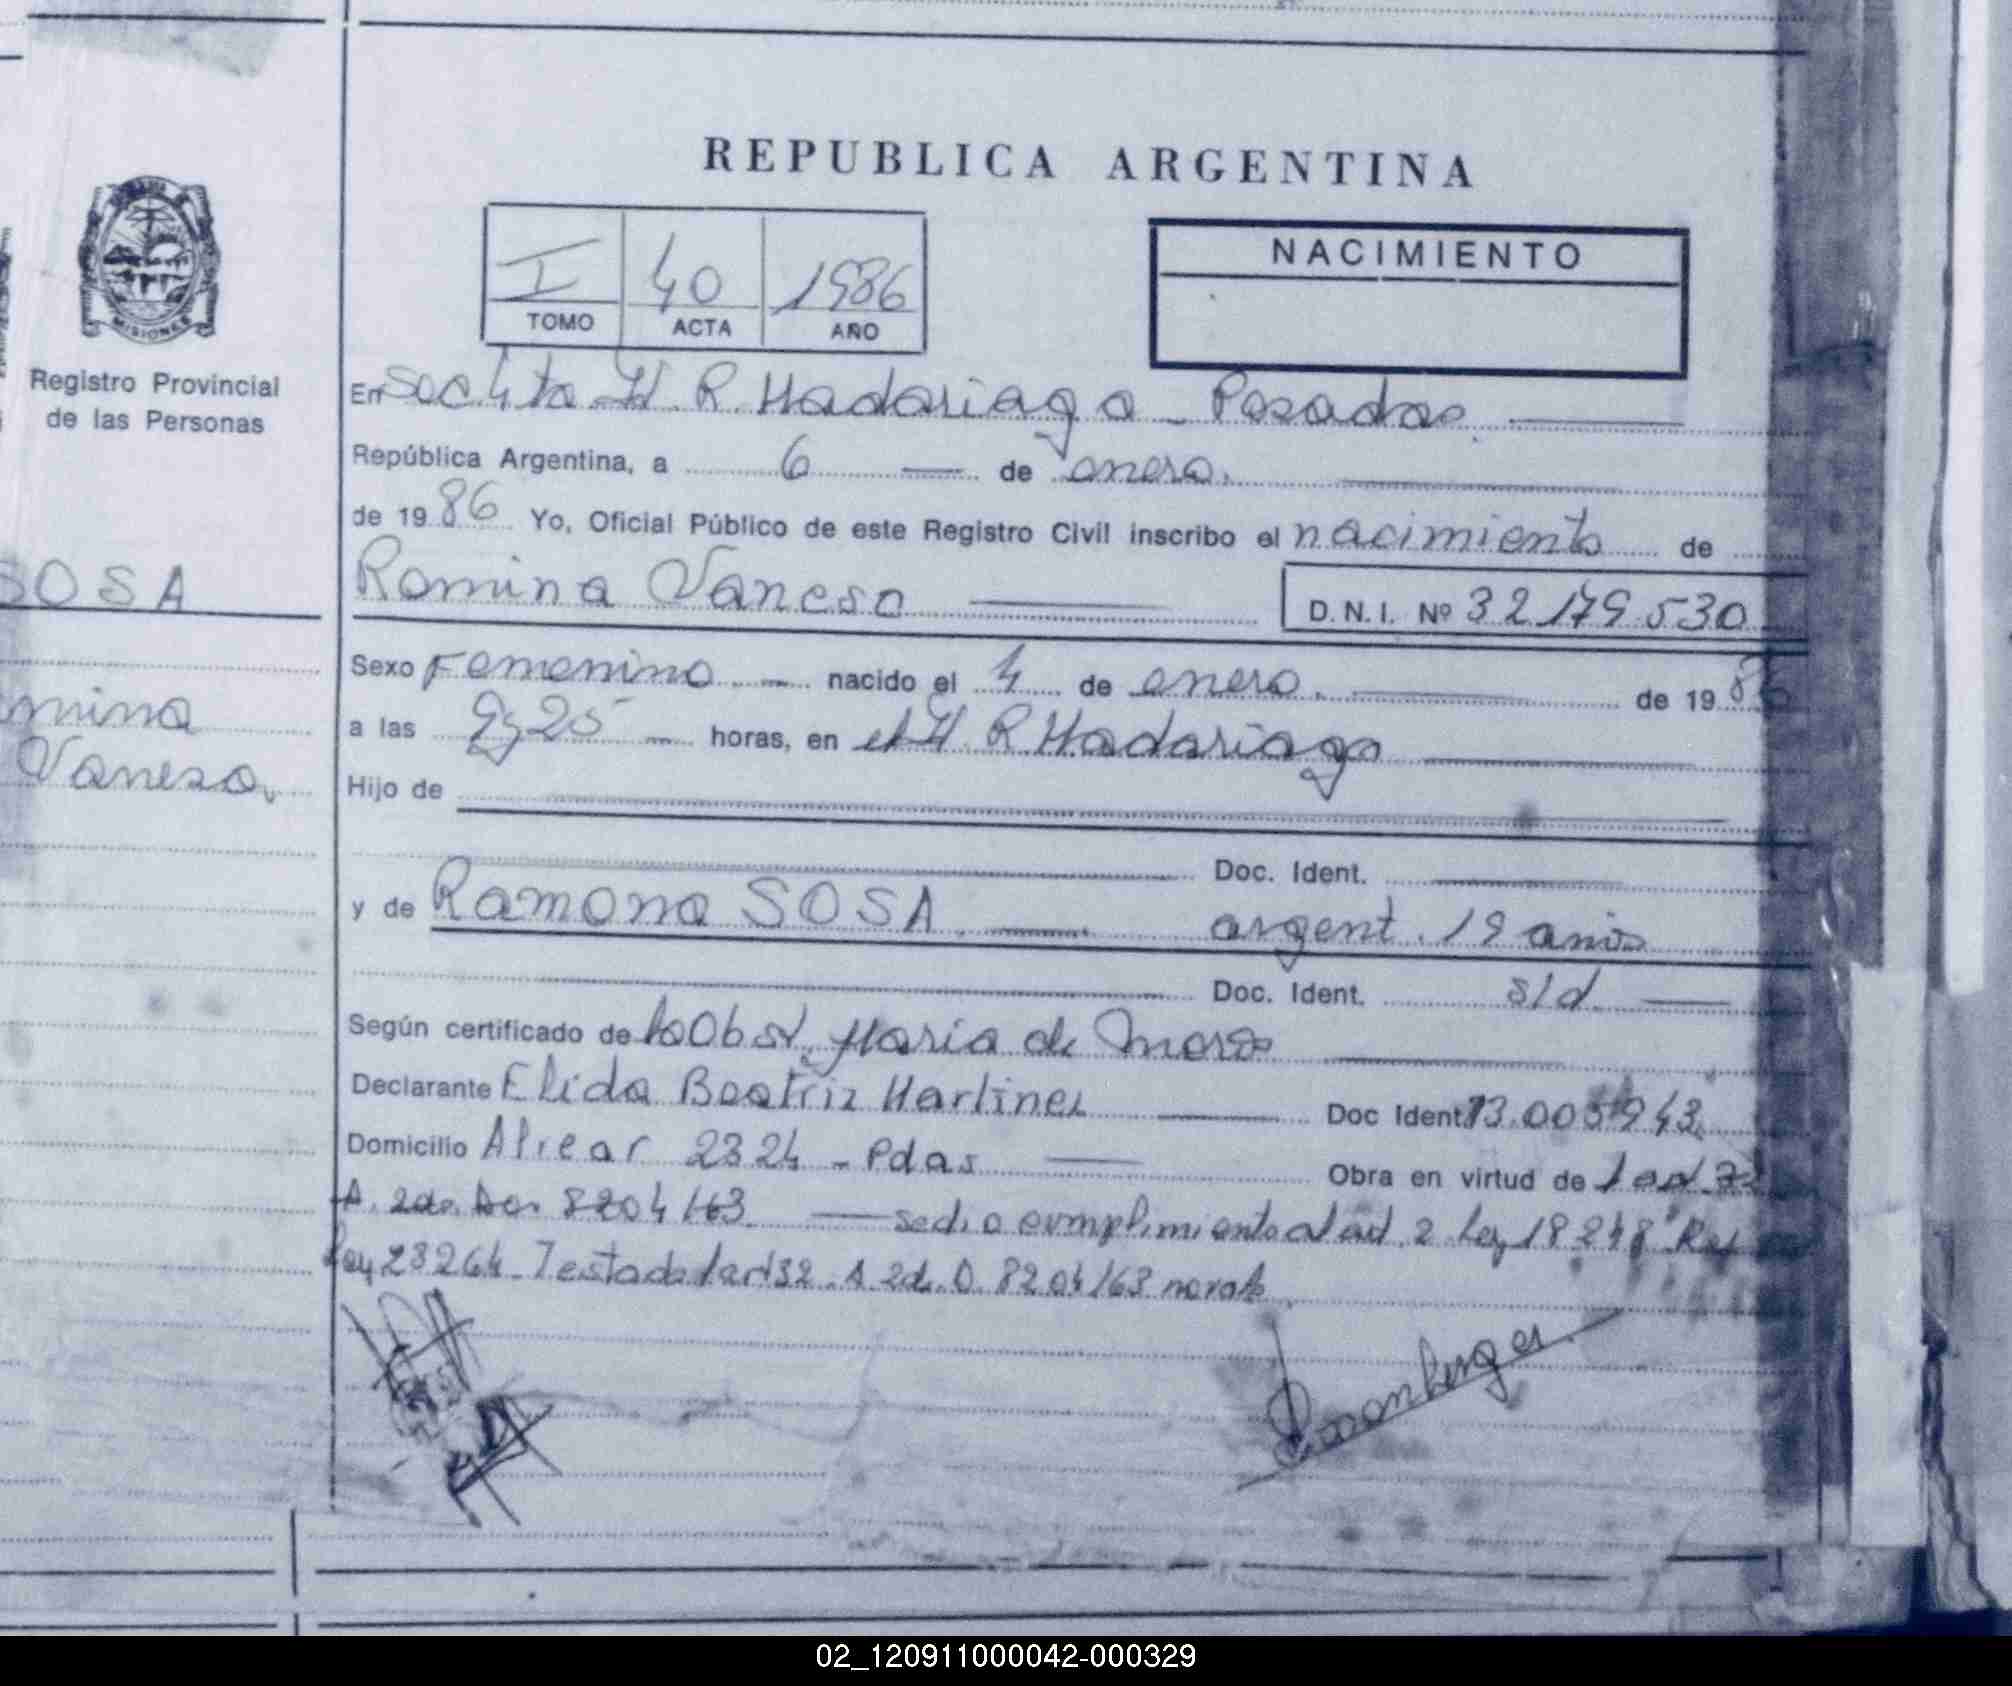 REPUBLICA ARGENTINA
I 40 1986
TOMO ACTA AÑO
NACIMIENTO
MISIONES
Registro Provincial
de las Personas
SOSA
mina
Vanesa
En Secc 4ta H. R. Madariaga - Posadas
República Argentina, a 6 de enero.
de 1986 Yo, Oficial Público de este Registro Civil inscribo el nacimiento de
Romina Vanesa D.N.I. Nº 32.179.530
Sexo Femenino nacido el 4 de enero. de 1986
a las 9,25 horas, en el H. R Madariaga
Hijo de
Doc. Ident.
y de Ramona SOSA argent. 19 años
Doc. Ident. s/d
Según certificado de la Obst. Maria de
Declarante Elida Beatriz Martinez Doc Ident 13.005943
Domicilio Alvear 2324 - Pdas Obra en virtud de
A. 8204/63 se dio cumplimiento al art. 2 Ley 18248
Ley 23264 - Testado 8204/63 no vale
02_120911000042-000329